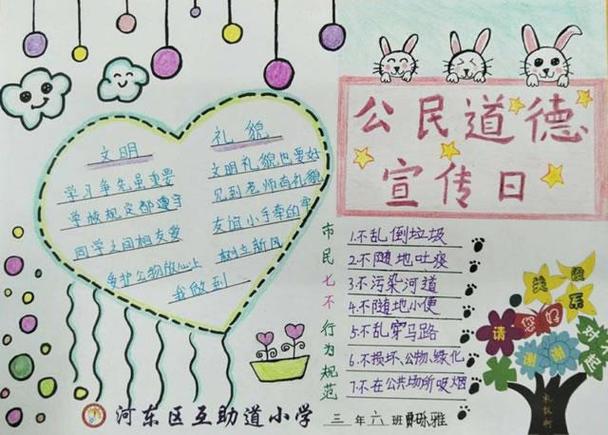 公民道德
宣传日
文明
学习争先虽重要
学校规定都遵守
同学之间相友爱
爱护公物放心上
礼貌
文明礼貌也要好
见到老师有礼貌
友谊小手牵的牢
树立新风
我做到
市民七不行为规范
1.不乱倒垃圾
2.不随地吐痰
3.不污染河道
4.不随地小便
5.不乱穿马路
6.不损坏公物、绿化
7.不在公共场所吸烟
请
您好
谢谢
河东区互助道小学
三年六班